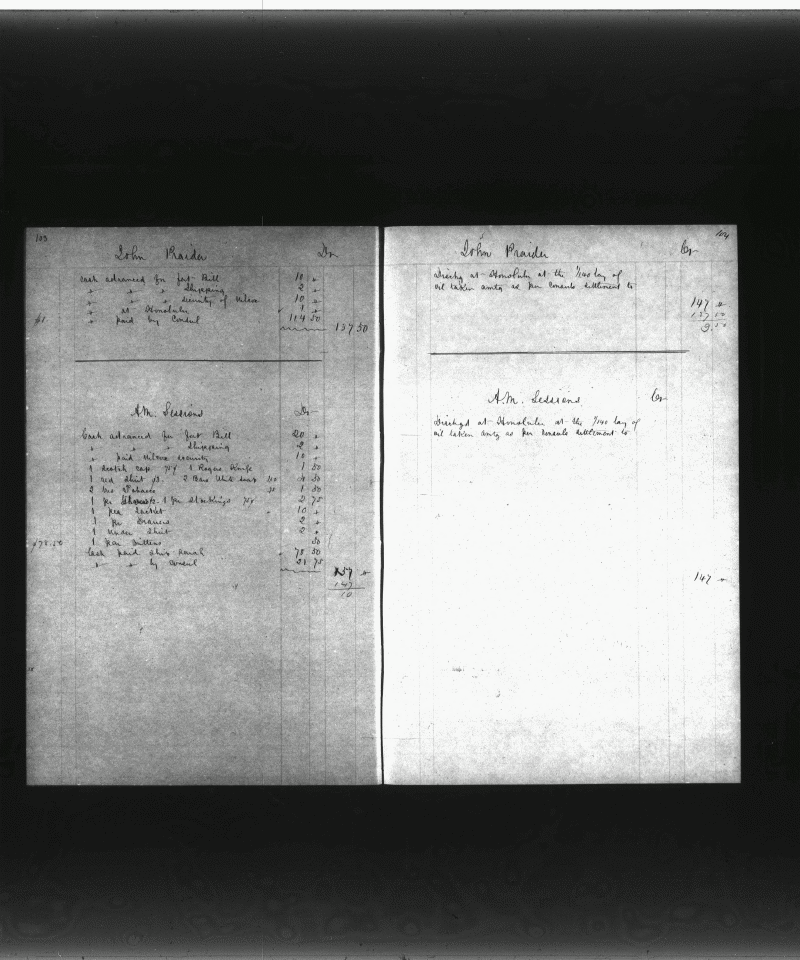 103
John Praider Dr
Cash advanced for fort Bill 10 "
" " " Shipping 2 "
" " " security of 10 "
$1 " at Honolulu 1 "
" paid by Consul 114 50
137 50
A.M. Sessions Dr
Cash advanced for fort Bill 20 "
" " " Shipping 2 "
" paid security 10 "
1 scotch cap 75¢ 1 Knife 1 50
1 red Shirt $3. 2 Bars 4 50
2 Tobacco 1 50
1 pr 1 pr Stockings 75¢ 2 75
1 Jacket 10 "
1 pr Drawers 2 "
1 under Shirt 2 "
1 pair mittens 50
$78.50 Cash paid 78 50
" " by consul 21 75
157 "
147
10
104
John Praider Cr
at Honolulu at the 1/140 lay of
oil taken as per consuls settlement to
147 "
137 50
9.50
A.M. Sessions Cr
at Honolulu at the 1/140 lay of
oil taken as per consuls settlement to
147 "